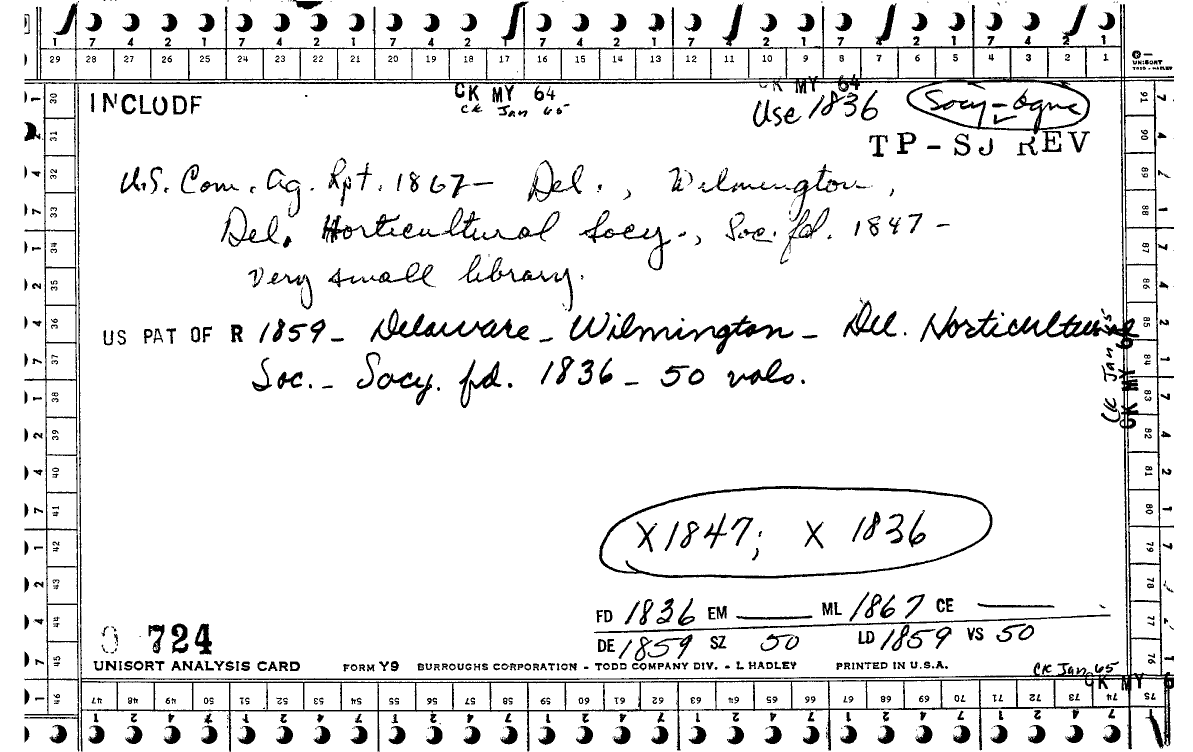 7 4 2 1 7 4 2 1 7 4 2 1 7 4 2 1 7 4 2 1 7 4 2 1 7 4 2 1
29 28 27 26 25 24 23 22 21 20 19 18 17 16 15 14 13 12 11 10 9 8 7 6 5 4 3 2 1
UNISORT
TODD - HADLEY
INCLUDE
CK MY 64
CK Jan 65
CK MY 64
Use 1836
TP-SJ REV
U.S. Com. Ag. Rpt. 1867 - Del., Wilmington,
Del. Horticultural Socy., Soc. fd. 1847 -
very small library.
US PAT OF R 1859 - Delaware - Wilmington - Del. Horticultural
Soc. - Socy. fd. 1836 - 50 vols.
CK Jan 65
CK MY 64
X 1847; X 1836
FD 1836 EM ML 1867 CE
DE 1859 SZ 50 LD 1859 VS 50
0 724
UNISORT ANALYSIS CARD FORM Y9 BURROUGHS CORPORATION - TODD COMPANY DIV. - L HADLEY PRINTED IN U.S.A.
CK Jan 65
CK MY 6
30 31 32 33 34 35 36 37 38 39 40 41 42 43 44 45 46
91 90 89 88 87 86 85 84 83 82 81 80 79 78 77 76 75
47 48 49 50 51 52 53 54 55 56 57 58 59 60 61 62 63 64 65 66 67 68 69 70 71 72 73 74 75